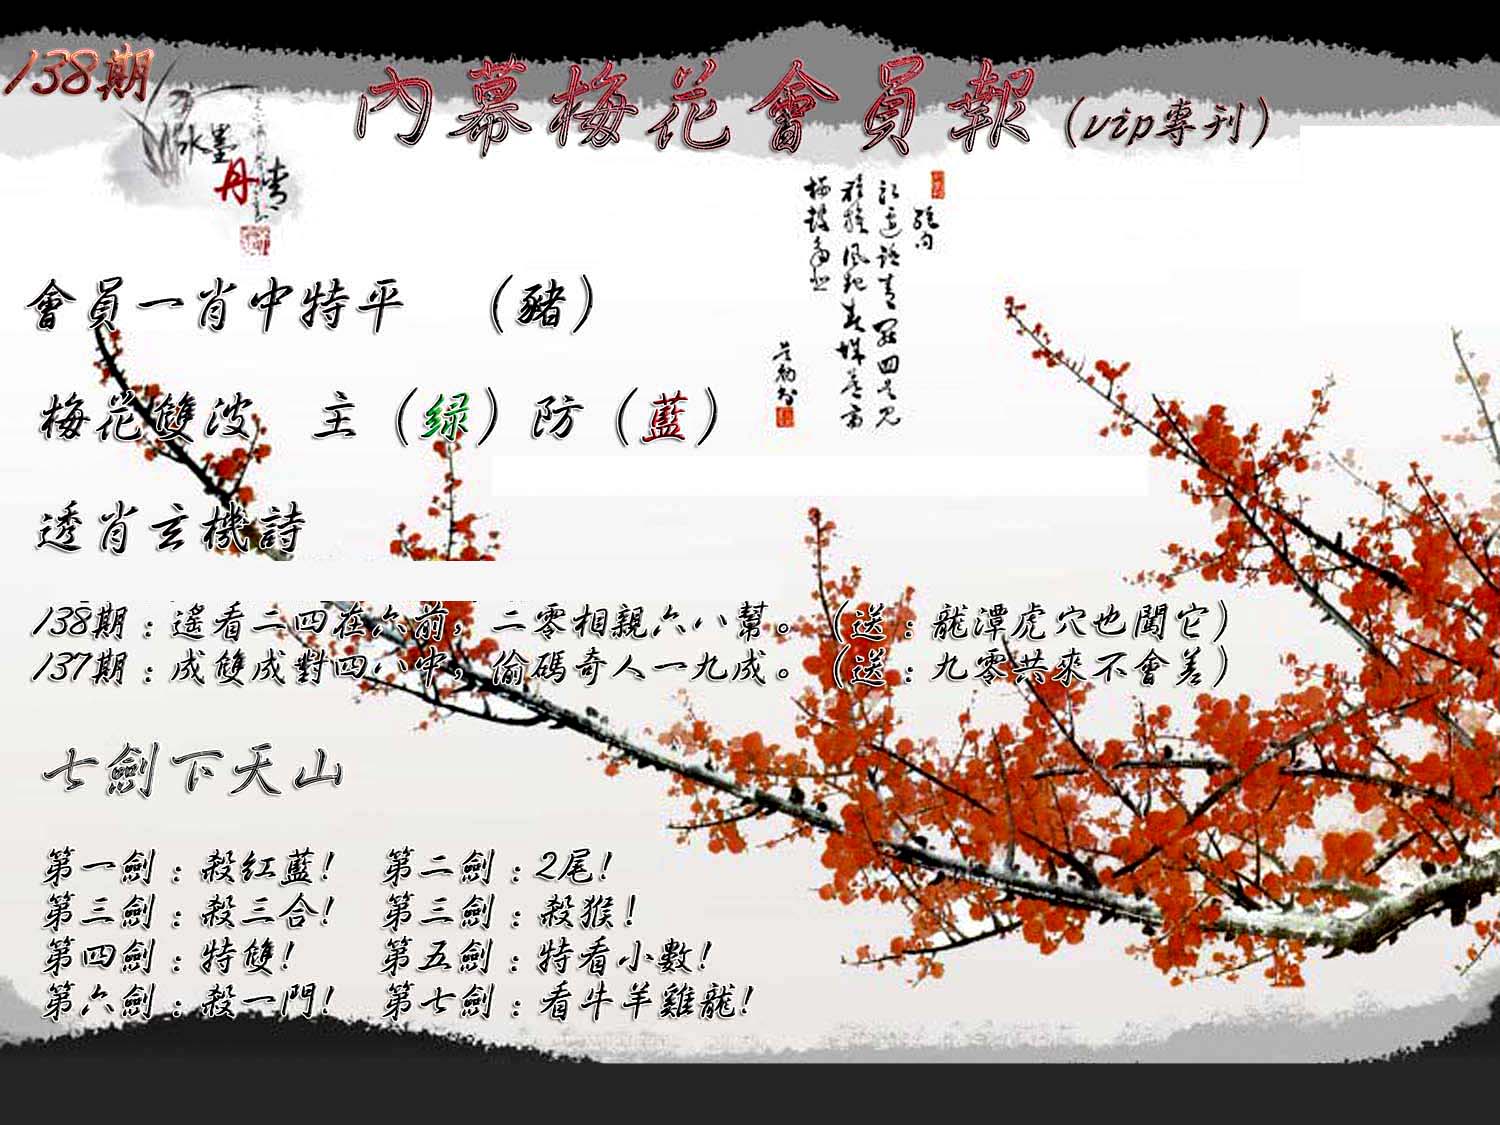 138期
內幕梅花會員報（vip專刊）
水墨
丹青
會員一肖中特平 （豬）
梅花雙波 主（绿）防（藍）
透肖玄機詩
138期：遙看二四在六前，二零相親六八幫。（送：龍潭虎穴也闖它）
137期：成雙成對四八中，偷碼奇人一九成。（送：九零共來不會差）
七劍下天山
第一劍：殺紅藍！ 第二劍：2尾！
第三劍：殺三合！ 第三劍：殺猴！
第四劍：特雙！ 第五劍：特看小數！
第六劍：殺一門！ 第七劍：看牛羊雞龍！